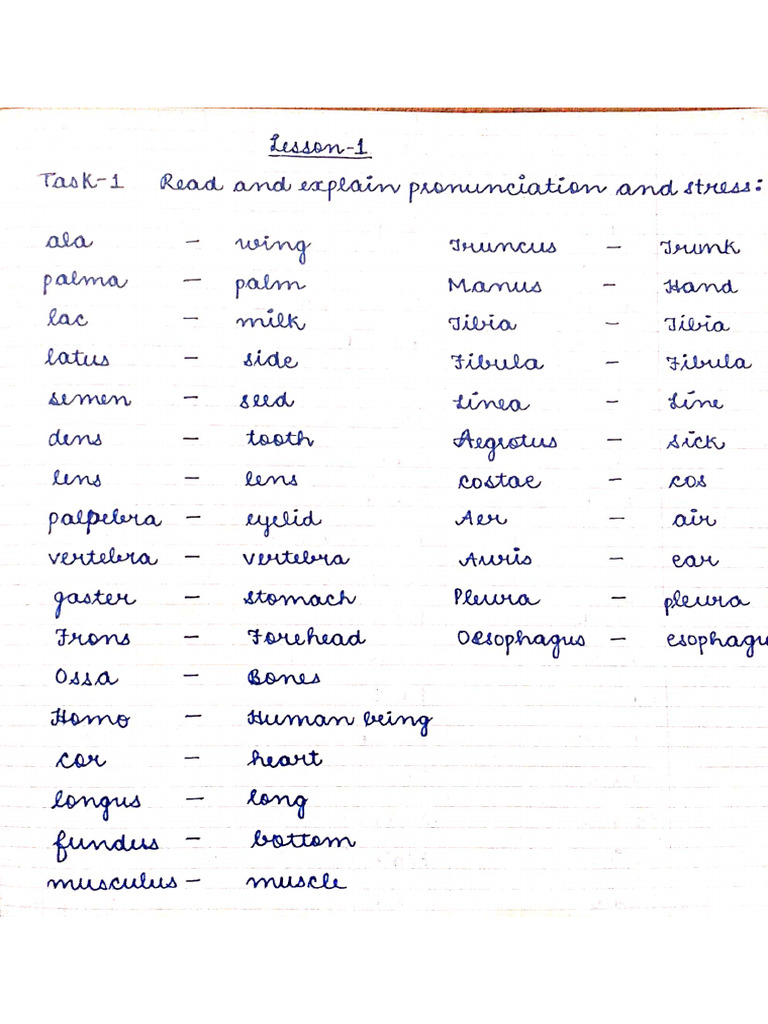 Lesson-1
Task-1 Read and explain pronunciation and stress:
ala - wing
palma - palm
lac - milk
latus - side
semen - seed
dens - tooth
lens - lens
palpebra - eyelid
vertebra - vertebra
gaster - stomach
Frons - Forehead
Ossa - Bones
Homo - Human being
cor - heart
longus - long
fundus - bottom
musculus - muscle
Truncus - Trunk
Manus - Hand
Tibia - Tibia
Fibula - Fibula
Linea - Line
Aegrotus - Sick
costae - cos
Aer - air
Auris - ear
Pleura - pleura
Oesophagus - esophagu